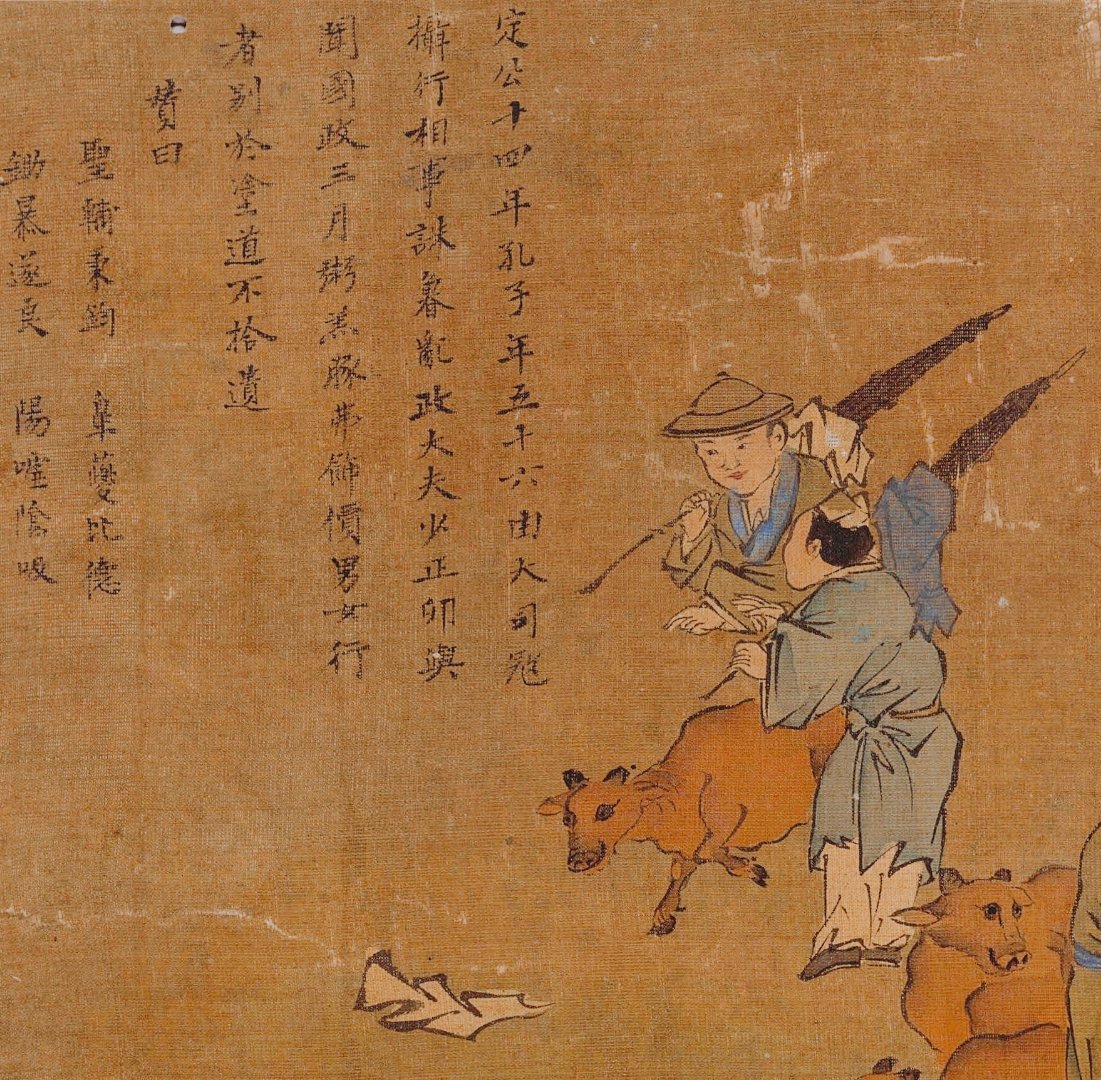 定公十四年孔子年五十六由大司寇
攝行相事誅魯亂政大夫少正卯與
聞國政三月粥羔豚弗飾價男女行
者別於塗道不拾遺
贊曰
聖輔秉鈞 皐夔比德
鋤暴遂良 陽噓陰吸